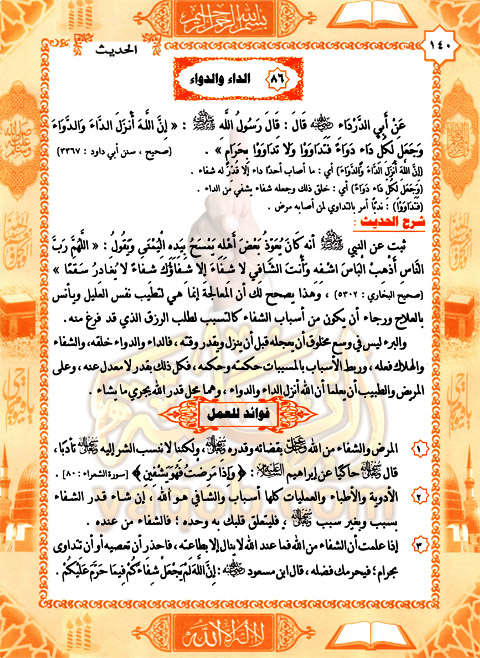 بسم الله الرحمن الرحيم
١٤٠
الحديث
٨٦ الداء والدواء
عَنْ أَبِي الدَّرْدَاءِ رضي الله عنه قَالَ : قَالَ رَسُولُ اللَّهِ ﷺ : « إِنَّ اللَّهَ أَنْزَلَ الدَّاءَ وَالدَّوَاءَ
وَجَعَلَ لِكُلِّ دَاءٍ دَوَاءً فَتَدَاوَوْا وَلَا تَدَاوَوْا بِحَرَامٍ » . (صحيح ، سنن أبي داود : ٣٣٦٧)
(إِنَّ اللَّهَ أَنْزَلَ الدَّاءَ وَالدَّوَاءَ) أي : ما أصاب أحدًا داء إلا قدَّر له شفاء .
(وَجَعَلَ لِكُلِّ دَاءٍ دَوَاءً) أي : خلق ذلك وجعله شفاء يشفي من الداء .
(فَتَدَاوَوْا) : ندبًا أمر بالتداوي لمن أصابه مرض .
شرح الحديث :
ثبت عن النبي ﷺ أنه كَانَ يُعَوِّذُ بَعْضَ أَهْلِهِ يَمْسَحُ بِيَدِهِ الْيُمْنَى وَيَقُولُ : « اللَّهُمَّ رَبَّ
النَّاسِ أَذْهِبْ الْبَاسَ اشْفِهِ وَأَنْتَ الشَّافِي لَا شِفَاءَ إِلَّا شِفَاؤُكَ شِفَاءً لَا يُغَادِرُ سَقَمًا »
(صحيح البخاري : ٥٣٠٢) ، وَهَذَا يصحح لك أن المعالجة إنما هي لتطيب نفس العليل ويأنس
بالعلاج ورجاء أن يكون من أسباب الشفاء كالتسبب لطلب الرزق الذي قد فرغ منه .
والبرء ليس في وسع مخلوق أن يعجله قبل أن ينزل ويقدر وقته ، فالداء والدواء خلقه، والشفاء
والهلاك فعله ، وربط الأسباب بالمسببات حكمته وحكمه ، فكل ذلك بقدر لا معدل عنه ، وعلى
المريض والطبيب أن يعلما أن الله أنزل الداء والدواء ، وهما محل قدر الله يجري ما يشاء .
فوائد للعمل
١ المرض والشفاء من الله عز وجل بقضائه وقدره ، ولكننا لا ننسب الشر إليه تأدبًا ،
قال حاكيًا عن إبراهيم عليه السلام : ﴿ وَإِذَا مَرِضْتُ فَهُوَ يَشْفِينِ ﴾ (سورة الشعراء : ٨٠) .
٢ الأدوية والأطباء والعمليات كلها أسباب والشافي هو الله ، إن شاء قدر الشفاء
بسبب وبغير سبب ، فليتعلق قلبك به وحده ؛ فالشفاء من عنده .
٣ إذا علمت أن الشفاء من الله فما عند الله لا ينال إلا بطاعته ، فاحذر أن تعصيه أو أن تتداوى
بحرام ؛ فيحرمك فضله ، قال ابن مسعود رضي الله عنه : إِنَّ اللَّهَ لَمْ يَجْعَلْ شِفَاءَكُمْ فِيمَا حَرَّمَ عَلَيْكُمْ .
لا إله إلا الله